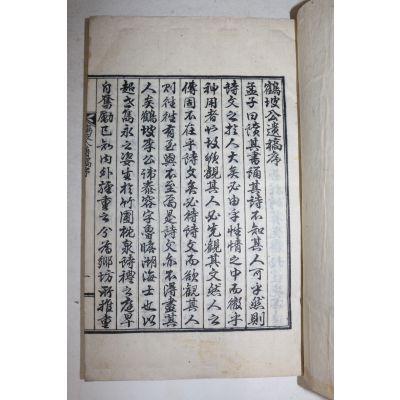 鶴坡公遺稿序
孟子曰讀其書誦其詩不知其人可乎然則
詩文之於人大矣必由乎性情之中而徵乎
神用者也故欲觀其人必先觀其文然人之
傳固不在乎詩文矣必待詩文而欲觀其人
則往往有其與不至焉是詩文亦不得盡其
人矣鶴坡李公諱泰容字魯瞻湖海士也以
超邁雋永之姿生於竹園枕泉詩禮之庭早
自奮勵已知內外輕重之分為鄉坊所雅重